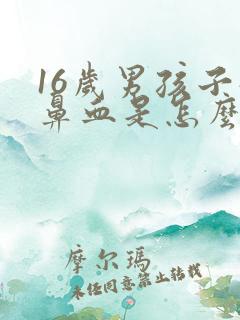 16歲男孩子
鼻血是怎麼
摩尔瑪
未经同意禁止转载